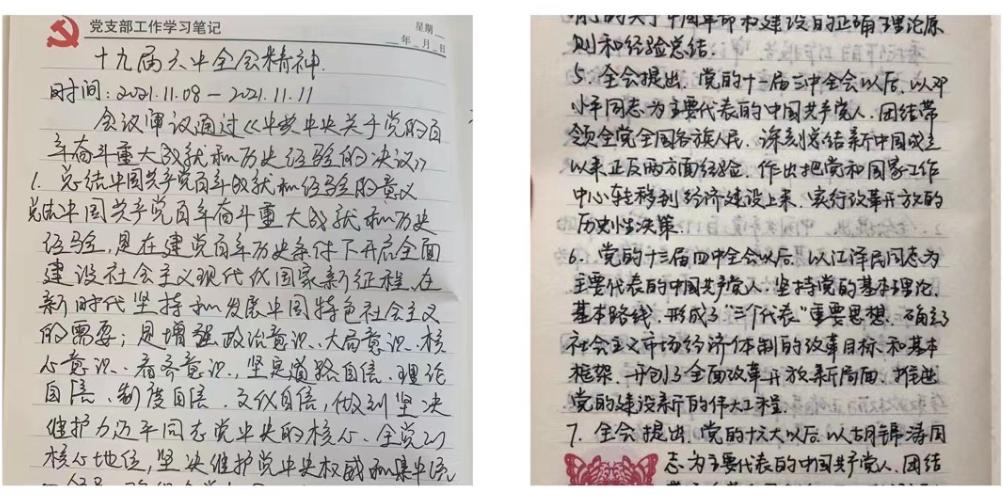 党支部工作学习笔记
星期
年 月 日
十九届六中全会精神.
时间:2021.11.08-2021.11.11
会议审议通过《中共中央关于党的百
年奋斗重大成就和历史经验的决议》
1. 总结中国共产党百年成就和经验的意义
总结中国共产党百年奋斗重大成就和历史
经验,是在建党百年历史条件下开启全面
建设社会主义现代化国家新征程,在
新时代坚持和发展中国特色社会主义
的需要;是增强政治意识、大局意识、核
心意识、看齐意识,坚定道路自信、理论
自信、制度自信、文化自信,做到坚决
维护习近平同志党中央的核心、全党的
核心地位,坚决维护党中央权威和集中统
前的关于中国革命和建设的正确理论原
则和经验总结.
5. 全会提出,党的十一届三中全会以后,以邓
小平同志为主要代表的中国共产党人,团结带
领全党全国各族人民,深刻总结新中国成立
以来正反两方面经验,作出把党和国家工作
中心转移到经济建设上来、实行改革开放的
历史性决策.
6. 党的十三届四中全会以后,以江泽民同志为
主要代表的中国共产党人,坚持党的基本理论、
基本路线,形成了“三个代表”重要思想,确立了
社会主义市场经济体制的改革目标和基本
框架,开创了全面改革开放新局面,推进
党的建设新的伟大工程.
7. 全会提出,党的十六大以后,以胡锦涛同
志为主要代表的中国共产党人,团结